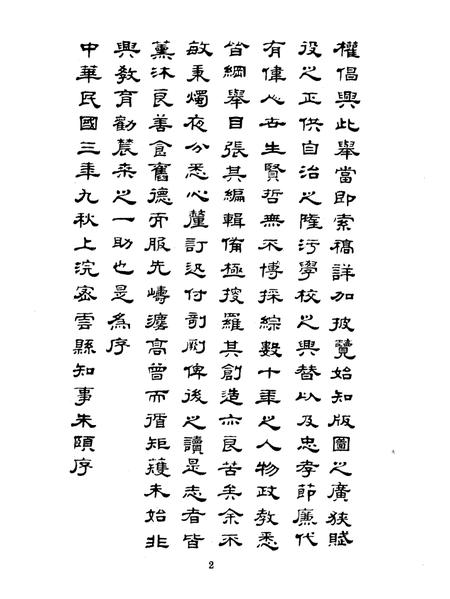 權倡興此舉當即索稿詳加披覽始知版圖之廣狹賦
役之正供自治之隆污學校之興替以及忠孝節廉代
有偉人世生賢哲無不博採綜數十年之人物政教悉
皆綱舉目張其編輯備極搜羅其創造亦良苦矣余不
敏秉燭夜分悉心釐訂迨付剞劂俾後之讀是志者皆
薰沐良善食舊德而服先疇遵高曾而循矩矱未始非
興教育勸農桑之一助也是為序
中華民國三年九秋上浣密雲縣知事朱頤序
2